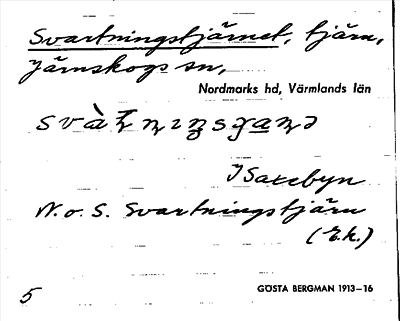 Svartningstjärnet, tjärn,
Järnskogs sn,
Nordmarks hd, Värmlands län
I Saxebyn
N. o. S. Svartningstjärn
(E.k.)
5 GÖSTA BERGMAN 1913–16